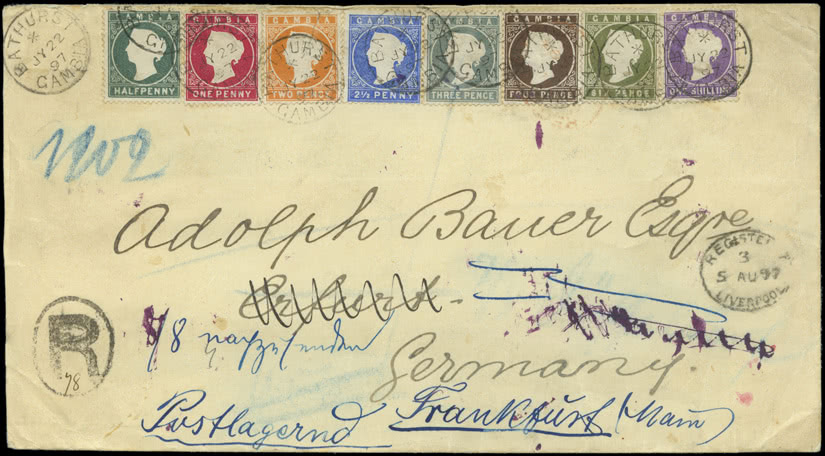 BATHURST
*
JY 22
97
GAMBIA
GAMBIA
HALFPENNY
GAMBIA
ONE PENNY
GAMBIA
TWO PENCE
GAMBIA
2½ PENNY
GAMBIA
THREE PENCE
GAMBIA
FOUR PENCE
GAMBIA
SIX PENCE
GAMBIA
ONE SHILLING
Adolph Bauer Esqre
REGISTERED
3
5 AU 97
LIVERPOOL
Erfurt.
R
78
Germany.
Postlagernd Frankfurt (Main)